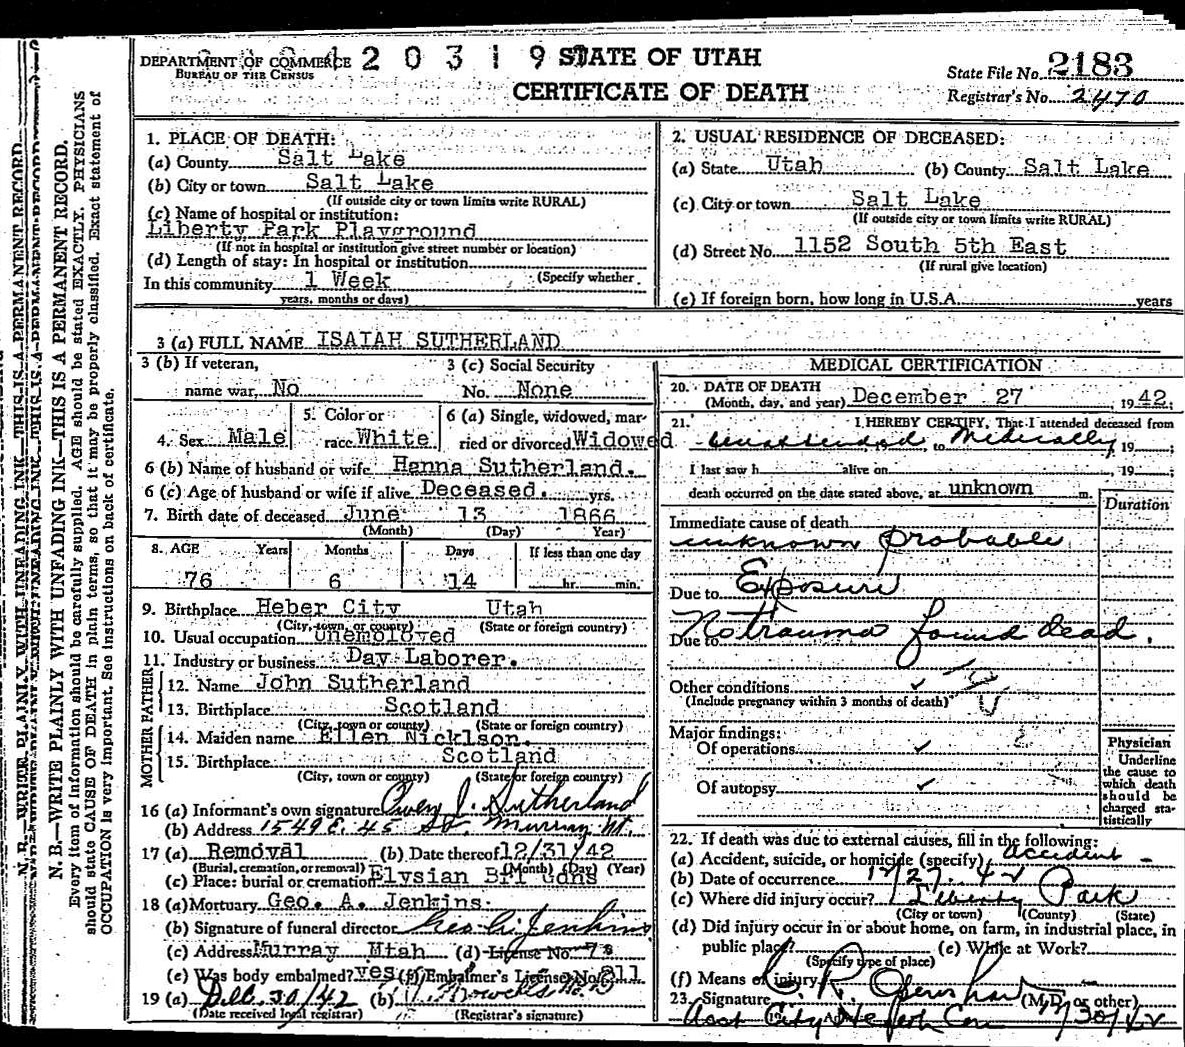 DEPARTMENT OF COMMERCE
BUREAU OF THE CENSUS
2 0 3 1 9
STATE OF UTAH
CERTIFICATE OF DEATH
State File No. 2183
Registrar's No. 2470
N. B.—WRITE PLAINLY WITH UNFADING INK—THIS IS A PERMANENT RECORD.
Every item of information should be carefully supplied. AGE should be stated EXACTLY. PHYSICIANS
should state CAUSE OF DEATH in plain terms, so that it may be properly classified. Exact statement of
OCCUPATION is very important. See instructions on back of certificate.
1. PLACE OF DEATH:
(a) County Salt Lake
(b) City or town Salt Lake
(If outside city or town limits write RURAL)
(c) Name of hospital or institution:
Liberty Park Playground
(If not in hospital or institution give street number or location)
(d) Length of stay: In hospital or institution
(Specify whether
In this community 1 Week
years, months or days)
2. USUAL RESIDENCE OF DECEASED:
(a) State Utah (b) County Salt Lake
(c) City or town Salt Lake
(If outside city or town limits write RURAL)
(d) Street No. 1152 South 5th East
(If rural give location)
(e) If foreign born, how long in U.S.A. years
3 (a) FULL NAME ISAIAH SUTHERLAND
3 (b) If veteran,
name war No
3 (c) Social Security
No. None
4. Sex Male
5. Color or
race White
6 (a) Single, widowed, mar-
ried or divorced Widowed
6 (b) Name of husband or wife Hanna Sutherland.
6 (c) Age of husband or wife if alive Deceased. yrs.
7. Birth date of deceased June 13 1866
(Month) (Day) Year)
8. AGE Years Months Days If less than one day
76 6 14 hr. min.
9. Birthplace Heber City Utah
(City, town, or county) (State or foreign country)
10. Usual occupation Unemployed
11. Industry or business Day Laborer.
FATHER
12. Name John Sutherland
13. Birthplace Scotland
(City, town or county) (State or foreign country)
MOTHER
14. Maiden name Ellen Nicklson.
15. Birthplace Scotland
(City, town or county) (State or foreign country)
16 (a) Informant's own signature Owen J. Sutherland
(b) Address 1549 E. 45 So. Murray Ut.
17 (a) Removal (b) Date thereof 12/31/42
(Burial, cremation, or removal) (Month) (Day) (Year)
(c) Place: burial or cremation Elysian Brl Gdns
18 (a) Mortuary Geo. A. Jenkins.
(b) Signature of funeral director Jenkins
(c) Address Murray Utah (d) License No. 78
(e) Was body embalmed? yes (f) Embalmer's License No. 311
19 (a) Dec. 30/42 (b)
(Date received local registrar) (Registrar's signature)
MEDICAL CERTIFICATION
20. DATE OF DEATH
(Month, day, and year) December 27 1942
21. I HEREBY CERTIFY, That I attended deceased from
unattended to Medically, 19
I last saw h alive on , 19
death occurred on the date stated above, at unknown m.
Duration
Immediate cause of death
unknown probable
Due to Exposure
Due to No trauma found dead.
Other conditions
(Include pregnancy within 3 months of death)
Major findings:
Of operations
Of autopsy
Physician
Underline
the cause to
which death
should be
charged sta-
tistically
22. If death was due to external causes, fill in the following:
(a) Accident, suicide, or homicide (specify) accident
(b) Date of occurrence 12/27-42
(c) Where did injury occur? Liberty Park
(City or town) (County) (State)
(d) Did injury occur in or about home, on farm, in industrial place, in
public place? (e) While at Work?
(Specify type of place)
(f) Means of injury
23. Signature (M.D. or other)
Asst City Health Com 12/30/42